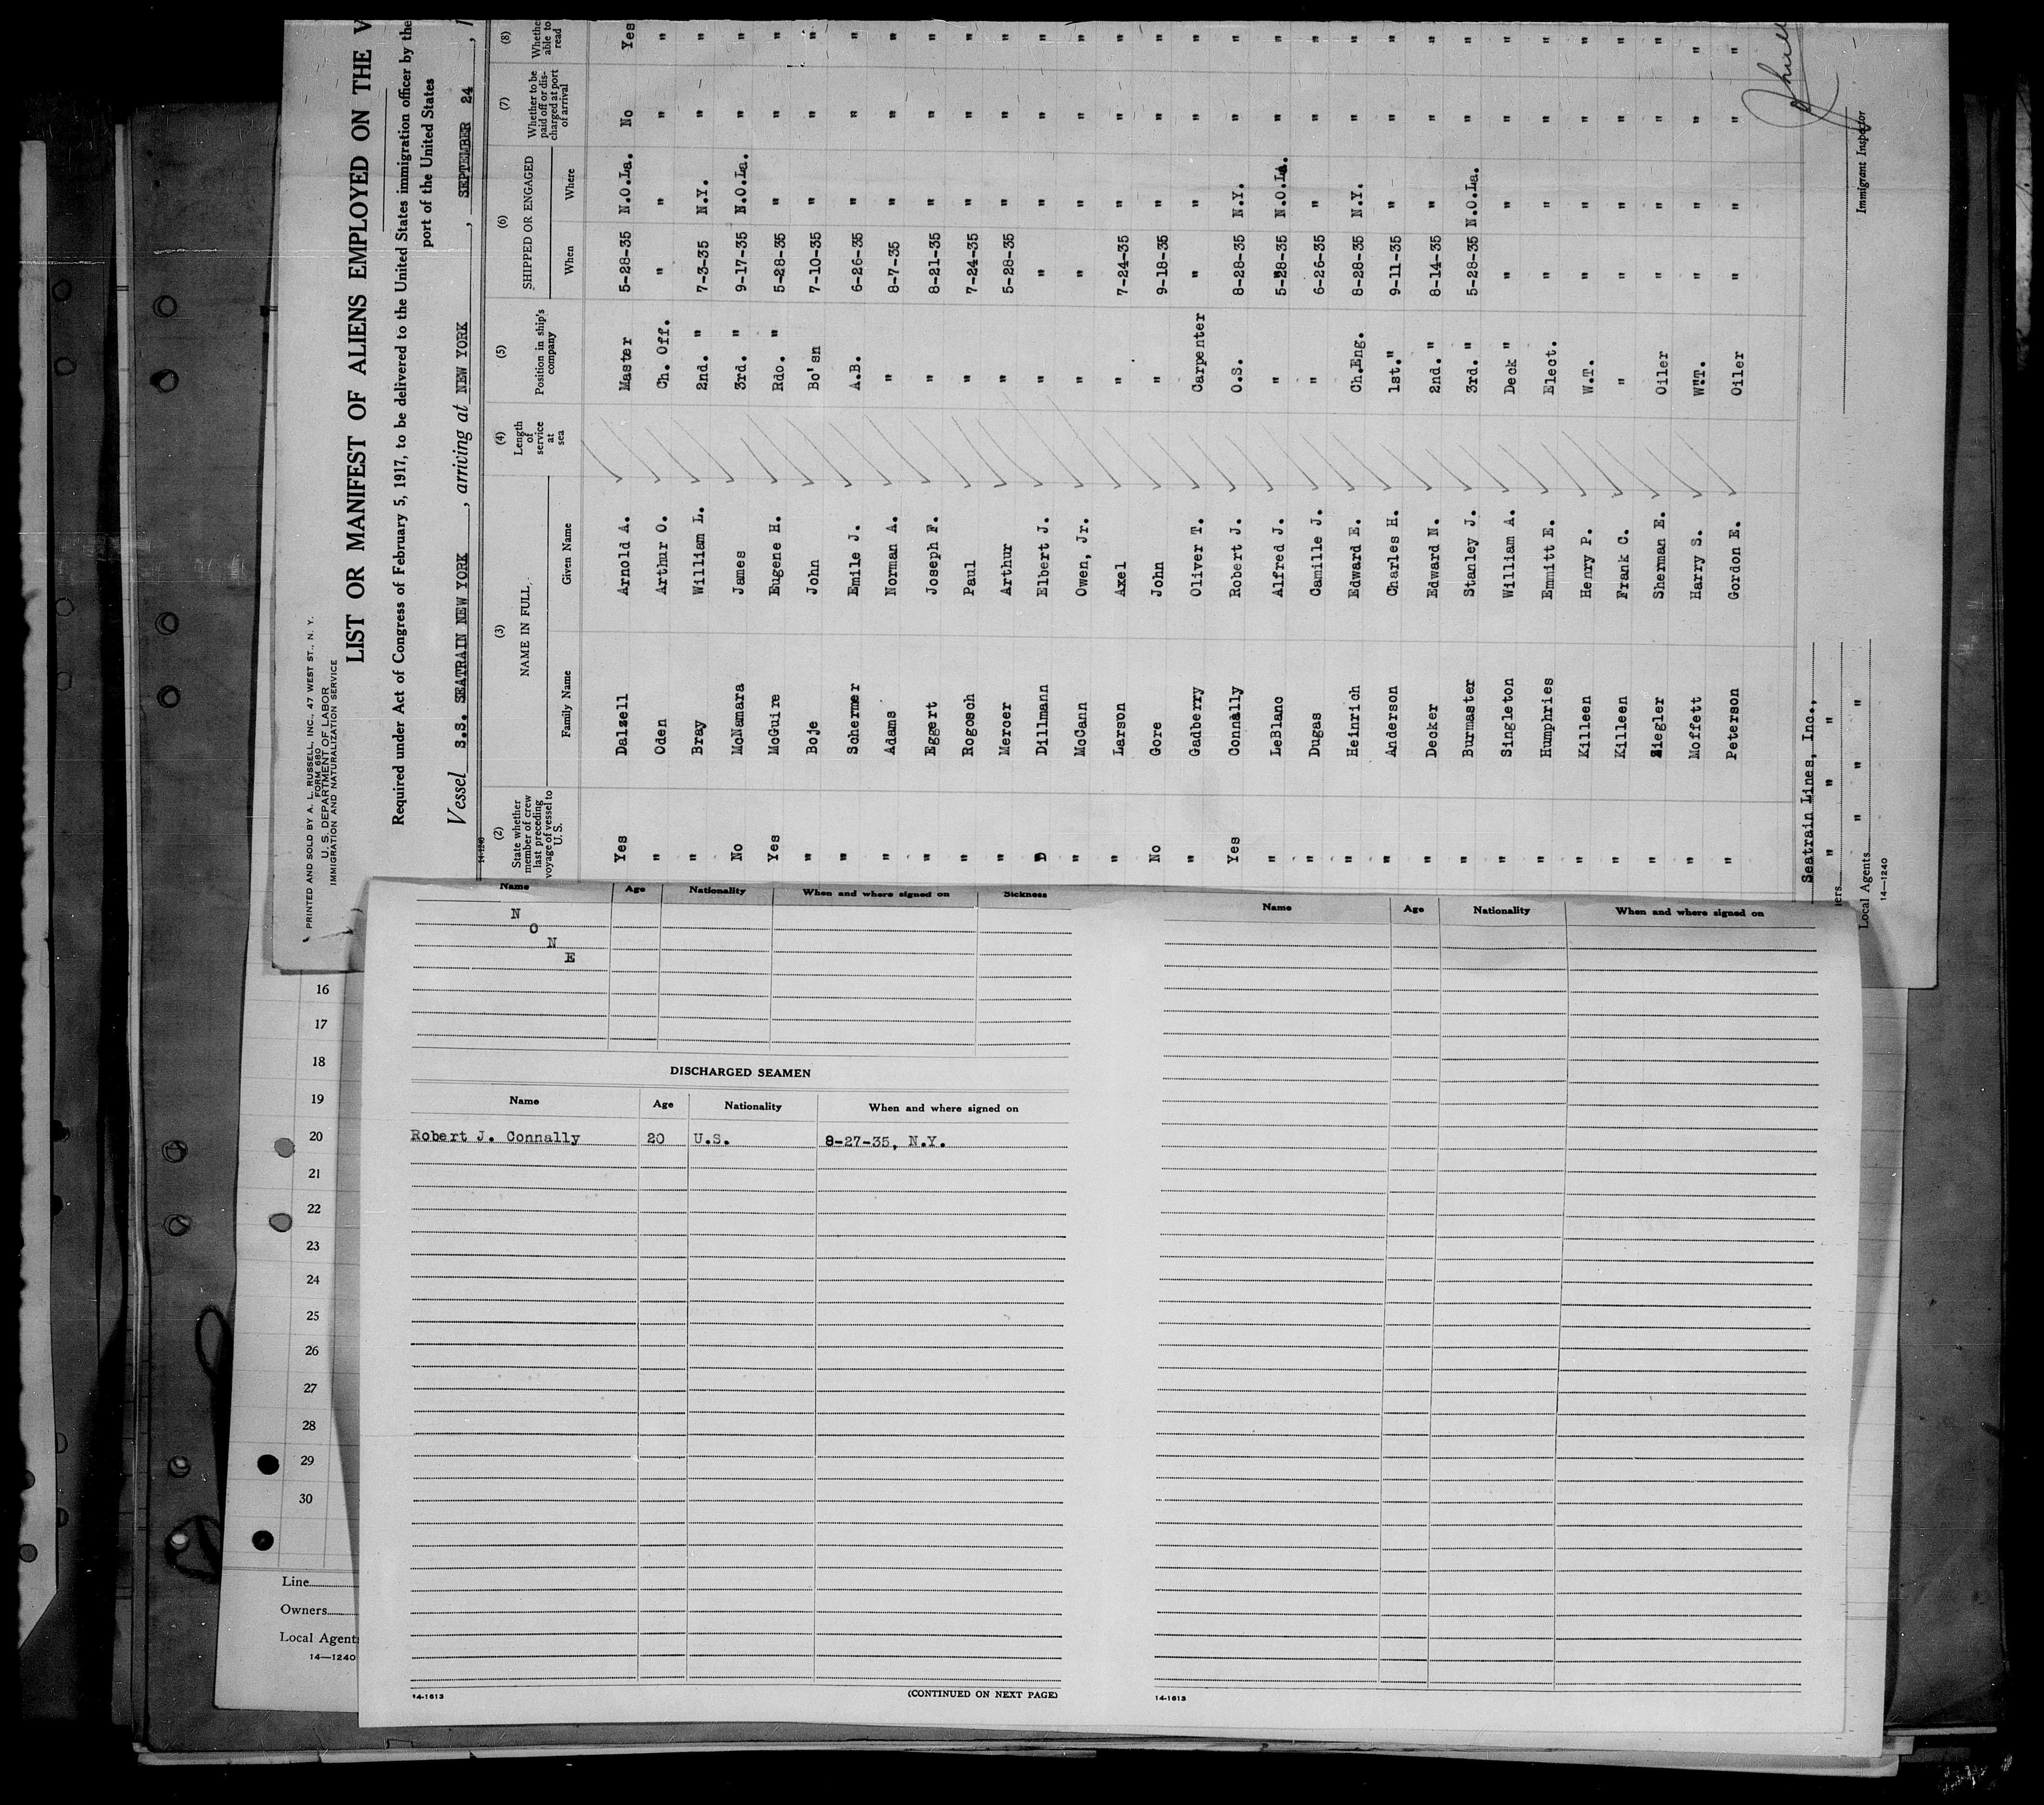 PRINTED AND SOLD BY A. L. RUSSELL, INC., 47 WEST ST., N. Y.
FORM 680
U. S. DEPARTMENT OF LABOR
IMMIGRATION AND NATURALIZATION SERVICE
LIST OR MANIFEST OF ALIENS EMPLOYED ON THE V
Required under Act of Congress of February 5, 1917, to be delivered to the United States immigration officer by the
port of the United States
Vessel S.S. SEATRAIN NEW YORK, arriving at NEW YORK, SEPTEMBER 24, 1
14-1240
(2) (3) (4) (5) (6) (7) (8)
State whether member of crew last preceding voyage of vessel to U. S. NAME IN FULL Length of service at sea Position in ship's company SHIPPED OR ENGAGED Whether to be paid off or discharged at port of arrival Whether able to read
Family Name Given Name When Where
Yes Dalzell Arnold A. Master 5-28-35 N.O.La. No Yes
" Oden Arthur O. Ch. Off. " " " "
" Bray William L. 2nd. " 7-3-35 N.Y. " "
No McNamara James 3rd. " 9-17-35 N.O.La. " "
Yes McGuire Eugene H. Rdo. " 5-28-35 " " "
" Boje John Bo'sn 7-10-35 " " "
" Schermer Emile J. A.B. 6-26-35 " " "
" Adams Norman A. " 8-7-35 " " "
" Eggert Joseph F. " 8-21-35 " " "
" Rogosch Paul " 7-24-35 " " "
" Mercer Arthur " 5-28-35 " " "
" Dillmann Elbert J. " " " " "
" McCann Owen, Jr. " " " " "
" Larson Axel " 7-24-35 " " "
No Gore John " 9-18-35 " " "
" Gadberry Oliver T. Carpenter " " " "
Yes Connally Robert J. O.S. 8-28-35 N.Y. " "
" LeBlanc Alfred J. " 5-28-35 N.O.La. " "
" Dugas Camille J. " 6-26-35 " " "
" Heinrich Edward E. Ch.Eng. 8-28-35 N.Y. " "
" Anderson Charles H. 1st." 9-11-35 " " "
" Decker Edward N. 2nd. " 8-14-35 " " "
" Burmaster Stanley J. 3rd. " 5-28-35 N.O.La. " "
" Singleton William A. Deck " " " " "
" Humphries Emmitt E. Elect. " " " "
" Killeen Henry P. W.T. " " " "
" Killeen Frank C. " " " " "
" Ziegler Sherman E. Oiler " " " "
" Moffett Harry S. W.T. " " " "
" Peterson Gordon E. Oiler " " " "
Seatrain Lines, Inc.,
ners " " " "
Local Agents " " "
14—1240
Immigrant Inspector
Name Age Nationality When and where signed on Sickness
N
O
N
E
DISCHARGED SEAMEN
Name Age Nationality When and where signed on
Robert J. Connally 20 U.S. 8-27-35, N.Y.
14-1613
(CONTINUED ON NEXT PAGE)
Name Age Nationality When and where signed on
14-1613
16
17
18
19
20
21
22
23
24
25
26
27
28
29
30
Line
Owners
Local Agents
14—1240